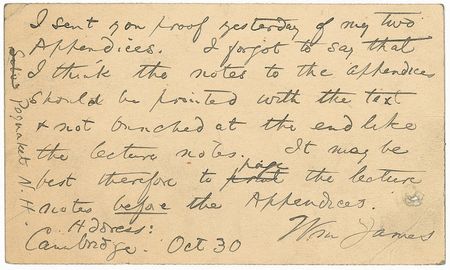 I sent you proof yesterday of my two
Appendices. I forgot to say that
I think the notes to the appendices
should be printed with the text
& not bunched at the end like
the lecture notes. It may be
best therefore to page the lecture
notes before the Appendices.
Wm James
Address:
Cambridge. Oct 30
N. H.